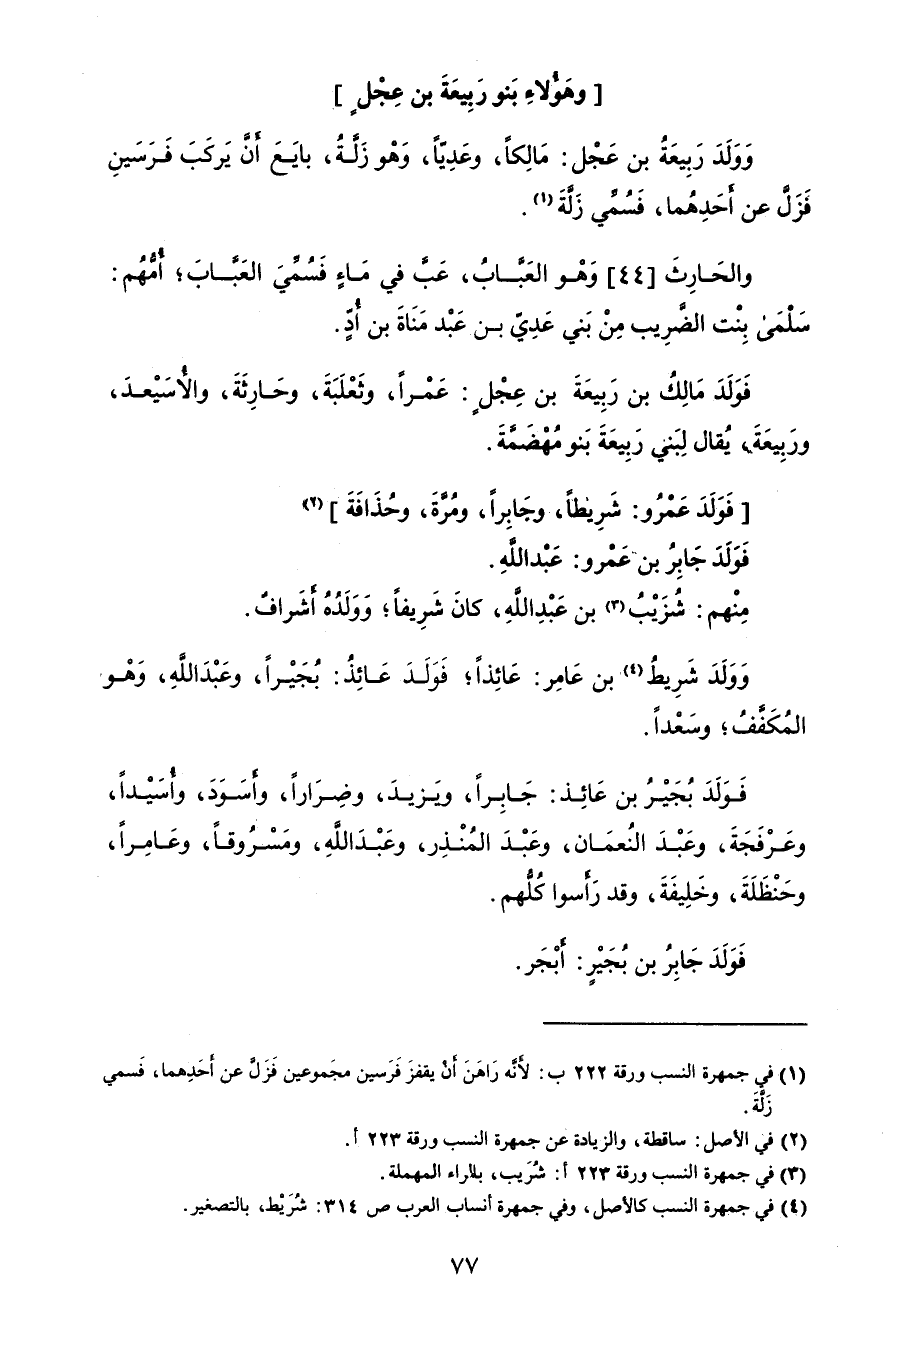 [ وهَؤُلاءِ بَنو رَبِيعَةَ بن عِجْلٍ ]
وَوَلَدَ رَبِيعَةُ بن عَجْل: مَالِكاً، وعَدِيّاً، وَهْو زَلَّةُ، بايَعَ أَنَّ يَركَبَ فَرَسَينِ
فَزَلَّ عن أَحَدِهُما، فَسُمِّي زَلَّةَ(١).
والحَارِثَ [٤٤] وَهْو العَبَّابُ، عَبَّ في مَاءٍ فَسُمِّيَ العَبَّابَ؛ أُمُّهُم:
سَلْمَىٰ بِنْت الضَّرِيب مِنْ بَني عَدِيّ بن عَبْد مَنَاةَ بن أُدّ.
فَوَلَدَ مَالِكُ بن رَبِيعَةَ بن عِجْلٍ: عَمْراً، وثَعْلَبَةَ، وحَارِثَةَ، والأُسَيْعدَ،
ورَبِيعَةَ، يُقال لِبَني رَبِيعَةَ بَنو مُهْضَمَّةَ.
[ فَوَلَدَ عَمْرُو: شَرِيطاً، وجَابِراً، ومُرَّةَ، وحُذَافَةَ ](٢)
فَوَلَدَ جَابِرُ بن عَمْرو: عَبْداللَّهِ.
مِنْهم: شُزَيْبُ(٣) بن عَبْدِاللَّهِ، كانَ شَرِيفاً؛ وَوَلَدُهُ أَشْرافٌ.
وَوَلَدَ شَرِيطُ(٤) بن عَامِر: عَائِذاً؛ فَوَلَدَ عَائِذُ: بُجَيْراً، وعَبْدَاللَّهِ، وَهْو
المُكَفَّفُ؛ وسَعْداً.
فَوَلَدَ بُجَيْرُ بن عَائِذ: جَابِراً، ويَزِيدَ، وضِرَاراً، وأَسَوَدَ، وأُسَيْداً،
وعَرْفَجَةَ، وعَبْدَ النُعمَان، وعَبْدَ المُنْذِر، وعَبْدَاللَّهِ، ومَسْرُوقاً، وعَامِراً،
وحَنْظَلَةَ، وخَلِيفَةَ، وقد رَأَسوا كُلُّهم.
فَوَلَدَ جَابِرُ بن بُجَيْرٍ: أَبْجَر.
(١) في جمهرة النسب ورقة ٢٢٢ ب: لأنَّه رَاهَنَ أنْ يقفز فَرَسين مجموعين فَزَلَّ عن أحَدِهما، فَسمي
زَلَّةَ.
(٢) في الأصل: ساقطة، والزيادة عن جمهرة النسب ورقة ٢٢٣ أ.
(٣) في جمهرة النسب ورقة ٢٢٣ أ: شُرَيب، بلاراء المهملة.
(٤) في جمهرة النسب كالأصل، وفي جمهرة أنساب العرب ص ٣١٤: شُرَيْط، بالتصغير.
٧٧